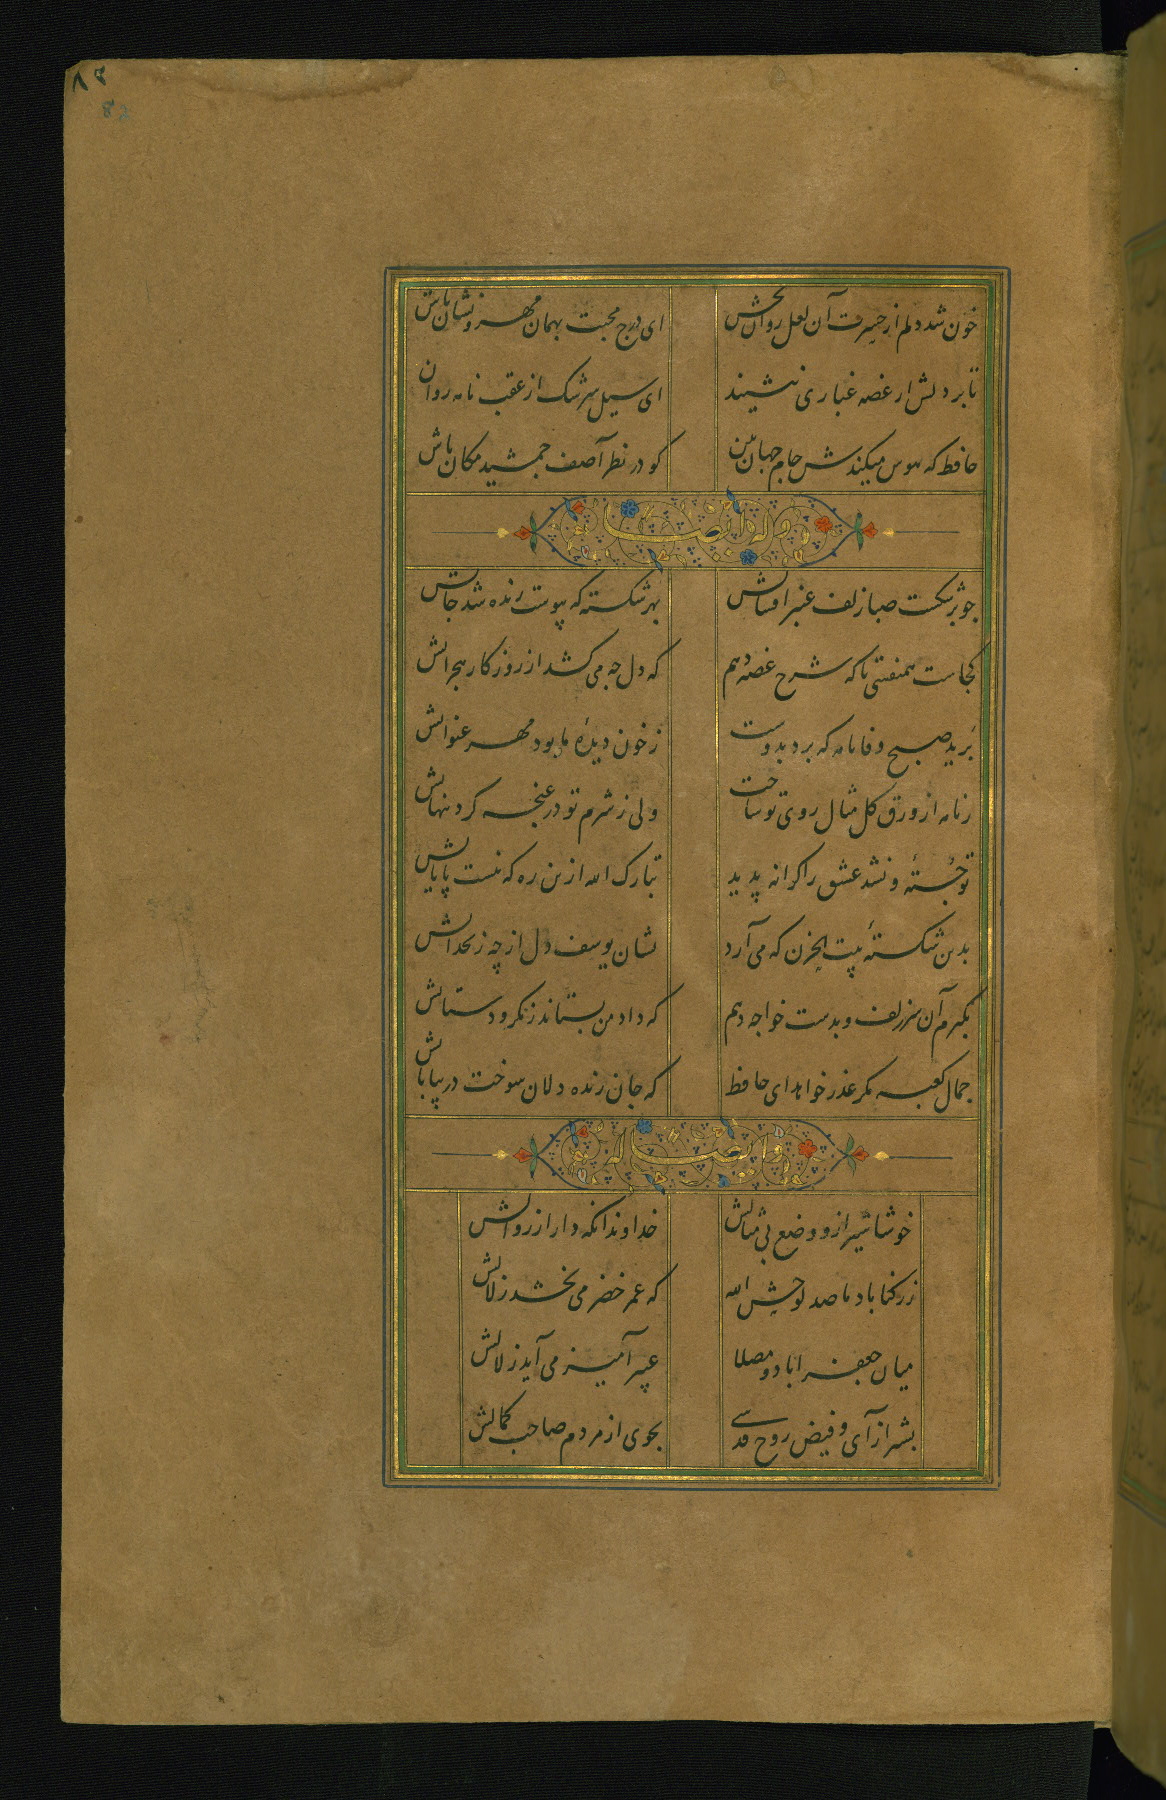 ۸۲
82
خون شد دلم از حسرت آن لعل روان بخش ای درج محبت بهمان مهر و نشان باش
تا بر دلش از غصه غباری ننشیند ای سیل سرشک از عقب نامه روان
حافظ که هوس میکندش جام جهان بین کو در نظر آصف جمشید مکان باش
وله ایضا
چو برشکست صبا زلف عنبر افشانش بهر شکسته که پیوست زنده شد جانش
کجاست همنفسی تا که شرح غصه دهم که دل چه می کشد از روزگار هجرانش
برید صبح وفا نامه که برد بدوست ز خون دیدهٔ ما بود مهر عنوانش
زمانه از ورق کل مثال روی تو ساخت ولی ز شرم تو در غنچه کرد پنهانش
تو جستهٔ و نشد عشق را کرانه پدید تبارک الله ازین ره که نیست پایانش
بدین شکستهٔ بیت الحزن که می آرد نشان یوسف دل از چه زنخدانش
بگیرم آن سر زلف و بدست خواجه دهم که داد من بستاند ز مکر و دستانش
جمال کعبه مکر عذر خواهد ای حافظ که جان زنده دلان سوخت در بیابانش
وایضا له
خوشا شیراز و وضع بی مثالش خداوندا نکه دار از زوالش
ز رکناباد ما صد لوحش الله که عمر خضر می بخشد زلالش
میان جعفراباد و مصلا عبیر آمیز می آید زلالش
بشیراز آی و فیض روح قدسی بجوی از مردم صاحب کمالش